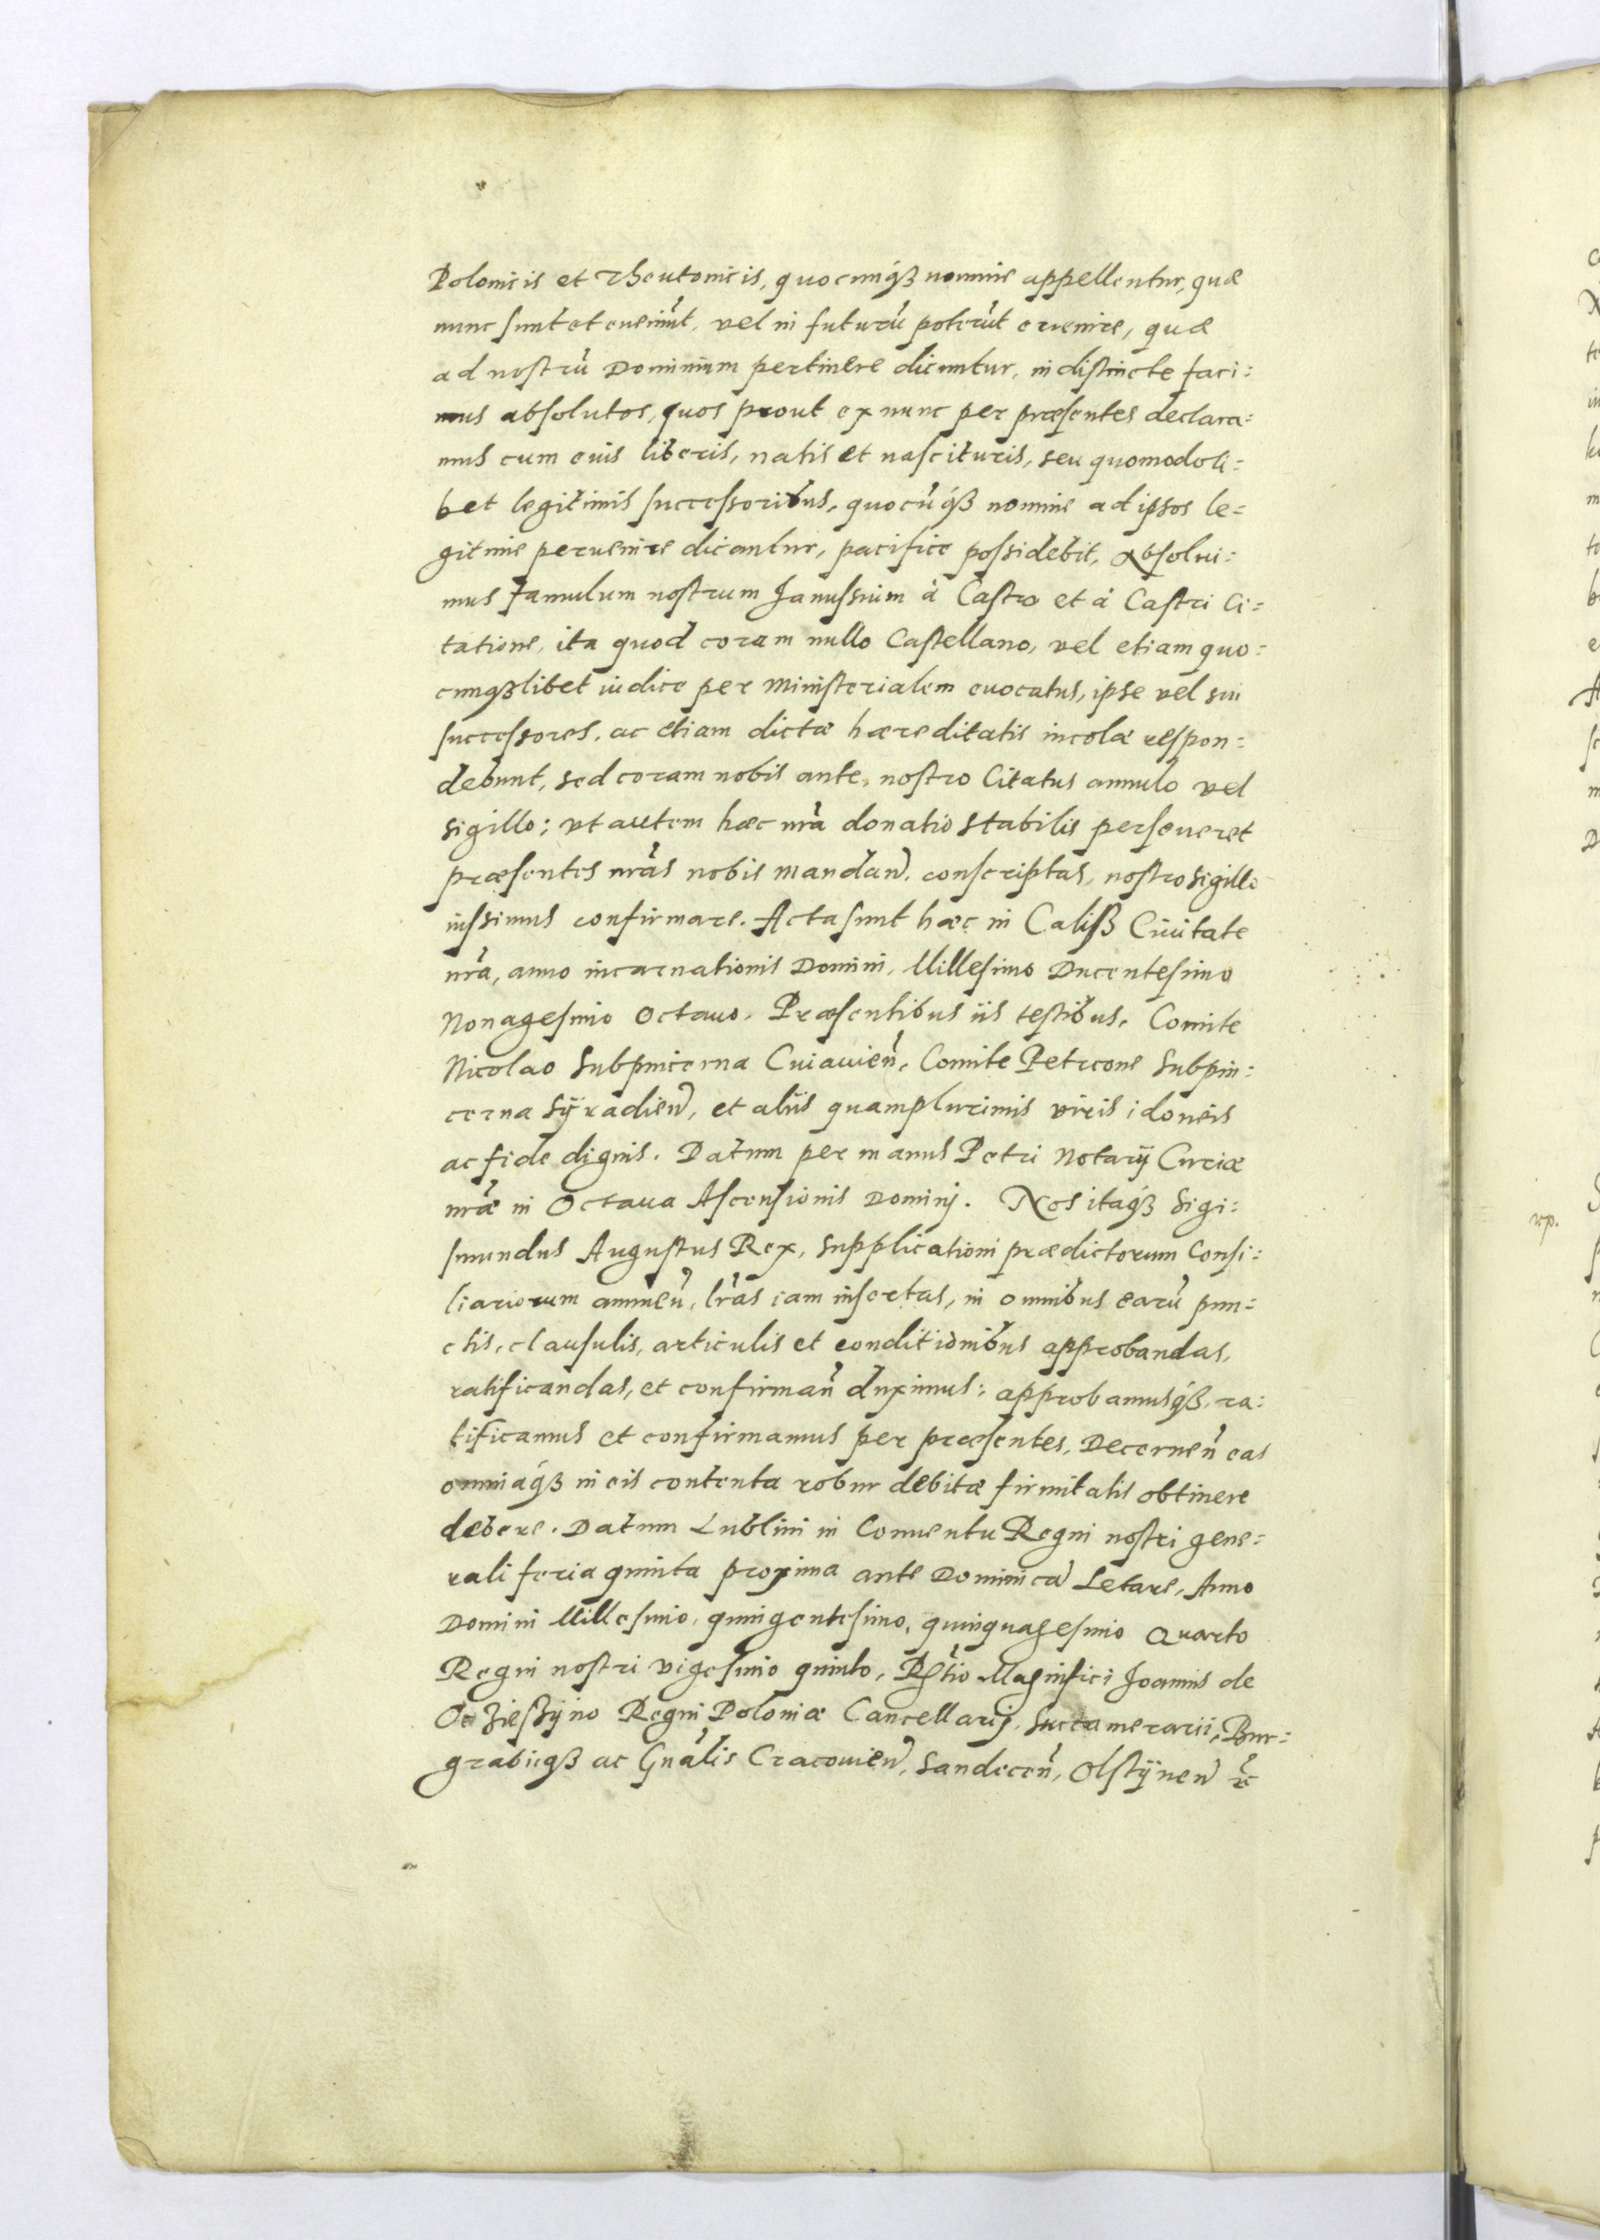 Polonicis et Theutonicis, quocunq́ꝫ nomine appellentur, quæ
nunc sunt et eueniūt, vel in futurū poterūt evenire, quæ
ad nostrū Dominium pertinere dicuntur, indistincte faci=
mus absolutos, quos prout ex nunc per præsentes declara=
mus cum euis liberis, natis et nascituris, seu quomodoli=
bet legitimis successoribus, quocūq́ꝫ nomine ad ipsos le=
gitime peruenire dicantur, pacifice possidebit, Absolui=
mus famulum nostrum Janussium à Castro et à Castri Ci=
tatione, ita quod coram nullo Castellano, vel etiam quo=
cunqꝫlibet iudice per Ministerialem euocatus, ipse vel sui
successores, ac etiam dictæ hæreditatis incolæ respon=
debunt, sed coram nobis ante, nostro Citatus annulo vel
sigillo; vt autem hæc nr̃a donatio stabilis perseueret
præsentes nr̃as nobis mandañ, conscriptas, nostro sigillo
iussimus confirmare. Acta sunt hæc in Calisß Ciuitate
nr̃a, anno incarnationis Domini, Millesimo Ducentesimo
Nonagesimo Octauo. Præsentibus iis testibus, Comite
Nicolao Subpincerna Cuiauieñ, Comite Petrcone Subpin=
cerna Syradieñ, et aliis quamplurimis viris idoneis
ac fide dignis. Datum per manus Petri Notarij Curiæ
nr̃æ in Octaua Ascensionis Dominj. Nos itaq́ꝫ Sigi=
smundus Augustus Rex, supplicationi prædictorum Consi=
liariorum annueñ, lr̃as iam insertas, in omnibus earū pun=
ctis, clausulis, articulis et conditionibus approbandas,
ratificandas, et confirmañ duximus: approbamusq́ꝫ, ra=
tificamus et confirmamus per præsentes, Decerneñ eas
omniaq́ꝫ in eis contenta robur debitæ firmitatis obtinere
debere. Datum Lublini in Conuentu Regni nostri gene=
rali feria quinta proxima ante Dominicā Letare, Anno
Domini Millesimo, quingentesimo, quinquagesimo Quarto
Regni nostri vigesimo quinto, Rl̃tio Magnifici Joannis de
Ocziesßyno Regni Poloniæ Cancellarij, Succamerarii, Bur=
grabiiqꝫ ac Gnãlis Cracouieñ, Sandeceñ, Olstyneñ
vp.